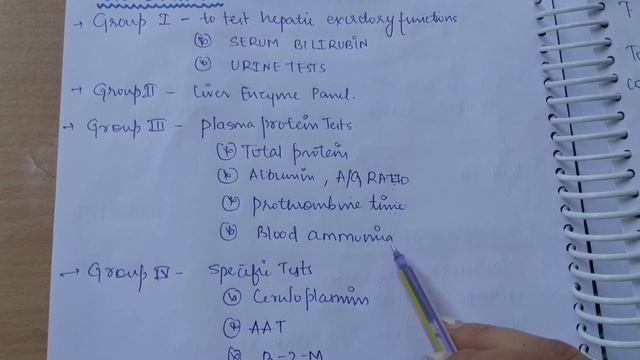 → Group I - to test hepatic excretory functions
* SERUM BILIRUBIN
* URINE TESTS
→ Group II - Liver Enzyme Panel.
→ Group III - plasma protein Tests
* Total protein
* Albumin, A/G RATIO
* prothrombine time
* Blood ammonia
→ Group IV - Specific Tests
* Ceruloplasmin
* AAT
* B-2-M